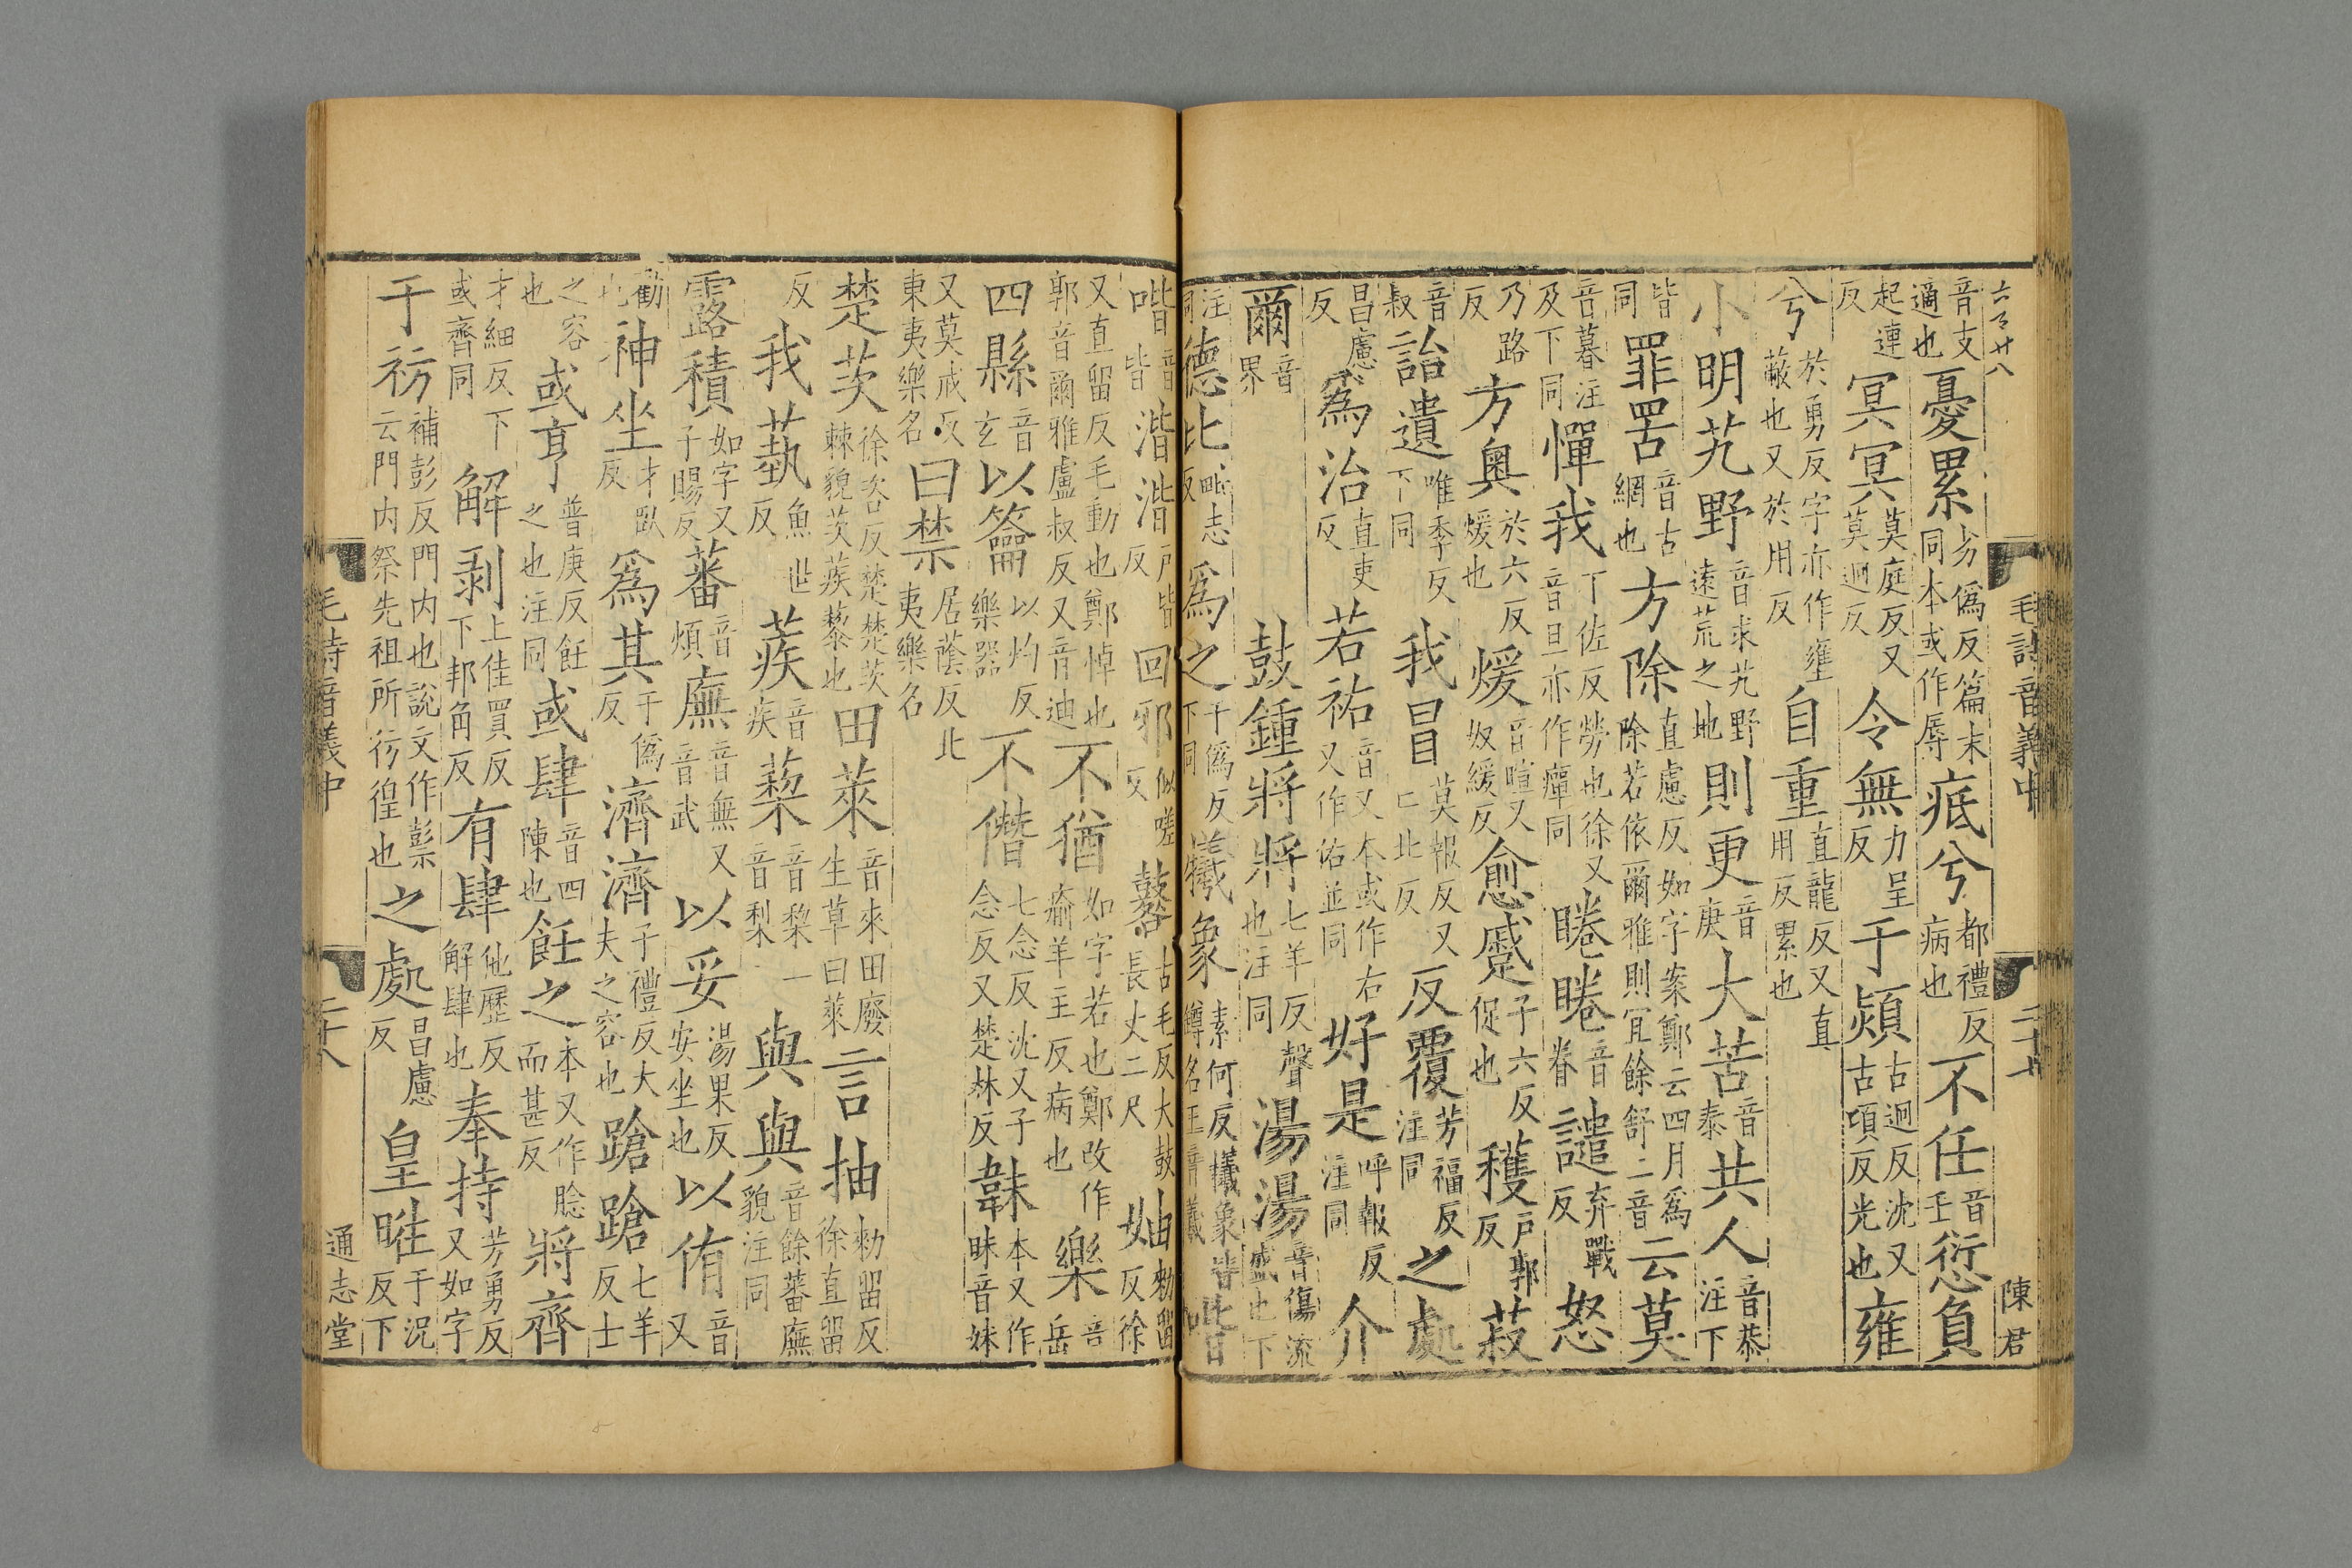 音支適也憂累劣僞反篇末同本或作辱疷兮都禮反病也不任音壬愆負
起連反冥冥莫庭反又莫迥反令無力呈反于熲古迥反沈又古頃反光也雍
兮於勇反字亦作壅蔽也又於用反自重直龍反又直用反累也
小明艽野音求艽野遠荒之地則更音庚大苦音泰共人音恭注下
皆同罪罟音古網也方除直慮反如字案鄭云四月爲除若依爾雅則宜餘舒二音云莫
音暮注及下同憚我丁佐反勞也徐又音旦亦作癉同睠睠音眷譴弃戰反怒
乃路反方奧於六反煖也煖音暄又奴緩反愈蹙子六反促也穫戶郭反菽
音叔詒遺唯季反下同我冒莫報反又亡北反反覆芳福反注同之處
昌慮反爲治直吏反若祐音又本或作右又作佑並同好是呼報反注同介
爾音界
鼓鍾將將七羊反聲也注同湯湯音傷流盛也下
注同德比毗志反爲之于僞反下同犧象素何反犧象皆鱒名王音羲
喈音皆湝湝戶皆反回邪似嗟反鼛古毛反大鼓長丈二尺妯勑留反徐
又直留反毛動也鄭悼也郭音爾雅盧叔反又音迪不猶如字若也鄭改作瘉羊主反病也樂音岳
四縣音玄以籥以灼反樂器不僭七念反沈又子念反又楚林反韎本又作昧音妹
又莫戒反東夷樂名曰禁居蔭反北夷樂名
楚茨徐咨反楚楚茨棘貌茨蒺藜也田萊音來田廢生草曰萊言抽勑留反徐直留
反我蓺魚世反蒺音疾蔾音黎一音梨與與音餘蕃廡貌注同
露積如字又子賜反蕃音煩廡音無又音武以妥湯果反安坐也以侑音又
勸也神坐才臥反爲其于僞反濟濟子禮反大夫之容也蹌蹌七羊反士
之容也或亨普庚反飪之也注同或肆音四陳也飪之本又作腍而甚反將齊
才細反下或齊同解剥上佳買反下邦角反有肆他歷反解肆也奉持芳勇反又如字
于祊補彭反門内也說文作𥛱云門内祭先祖所彷徨也之處昌慮反皇暀于況反下
毛詩音義中
二十七
陳君
毛詩音義中
二十八
通志堂